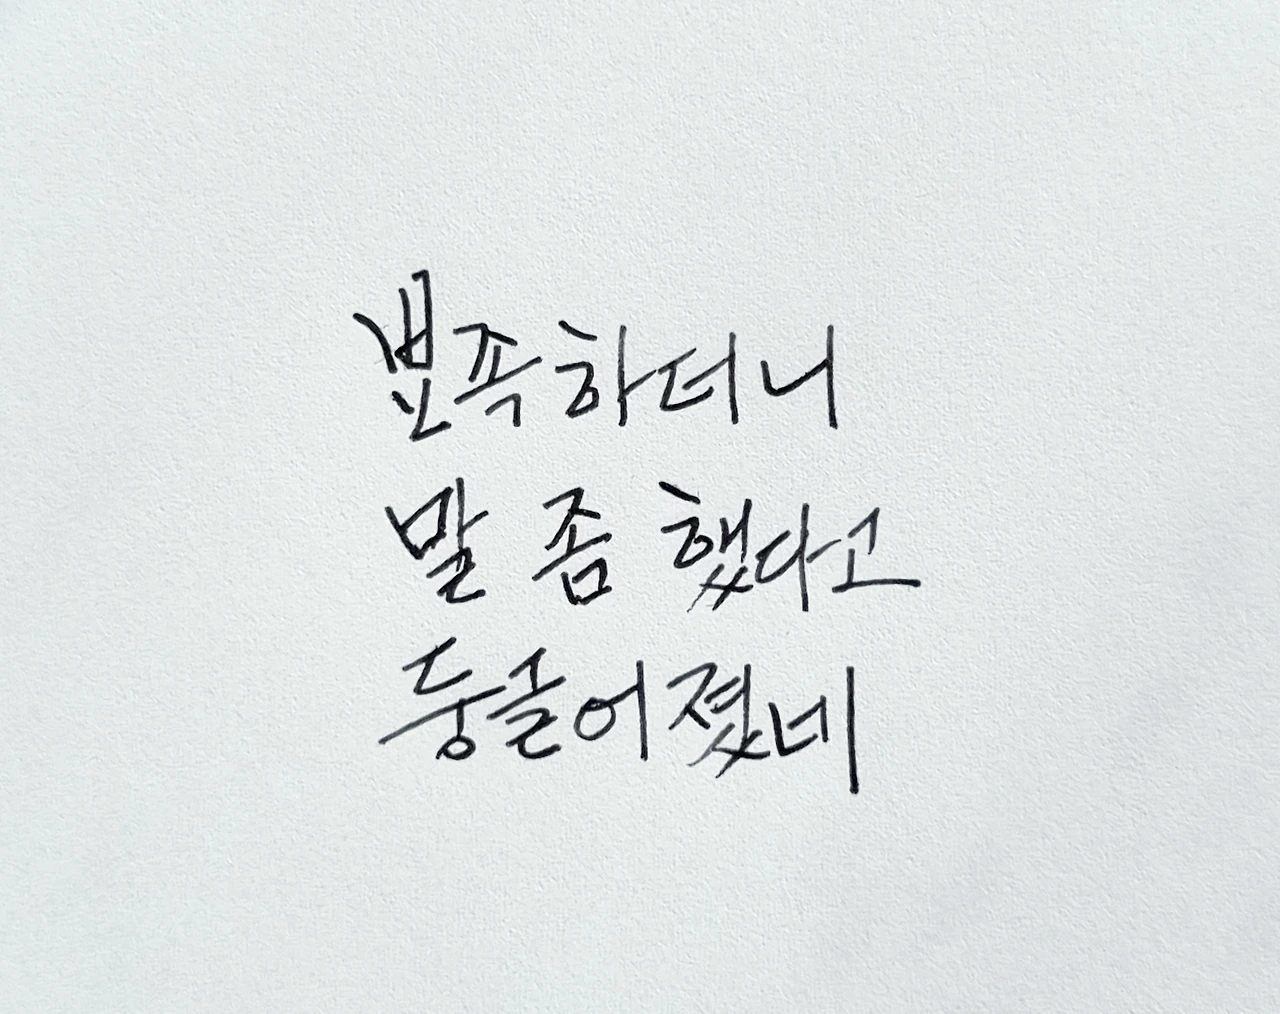 뾰족하더니
말 좀 했다고
둥글어졌네